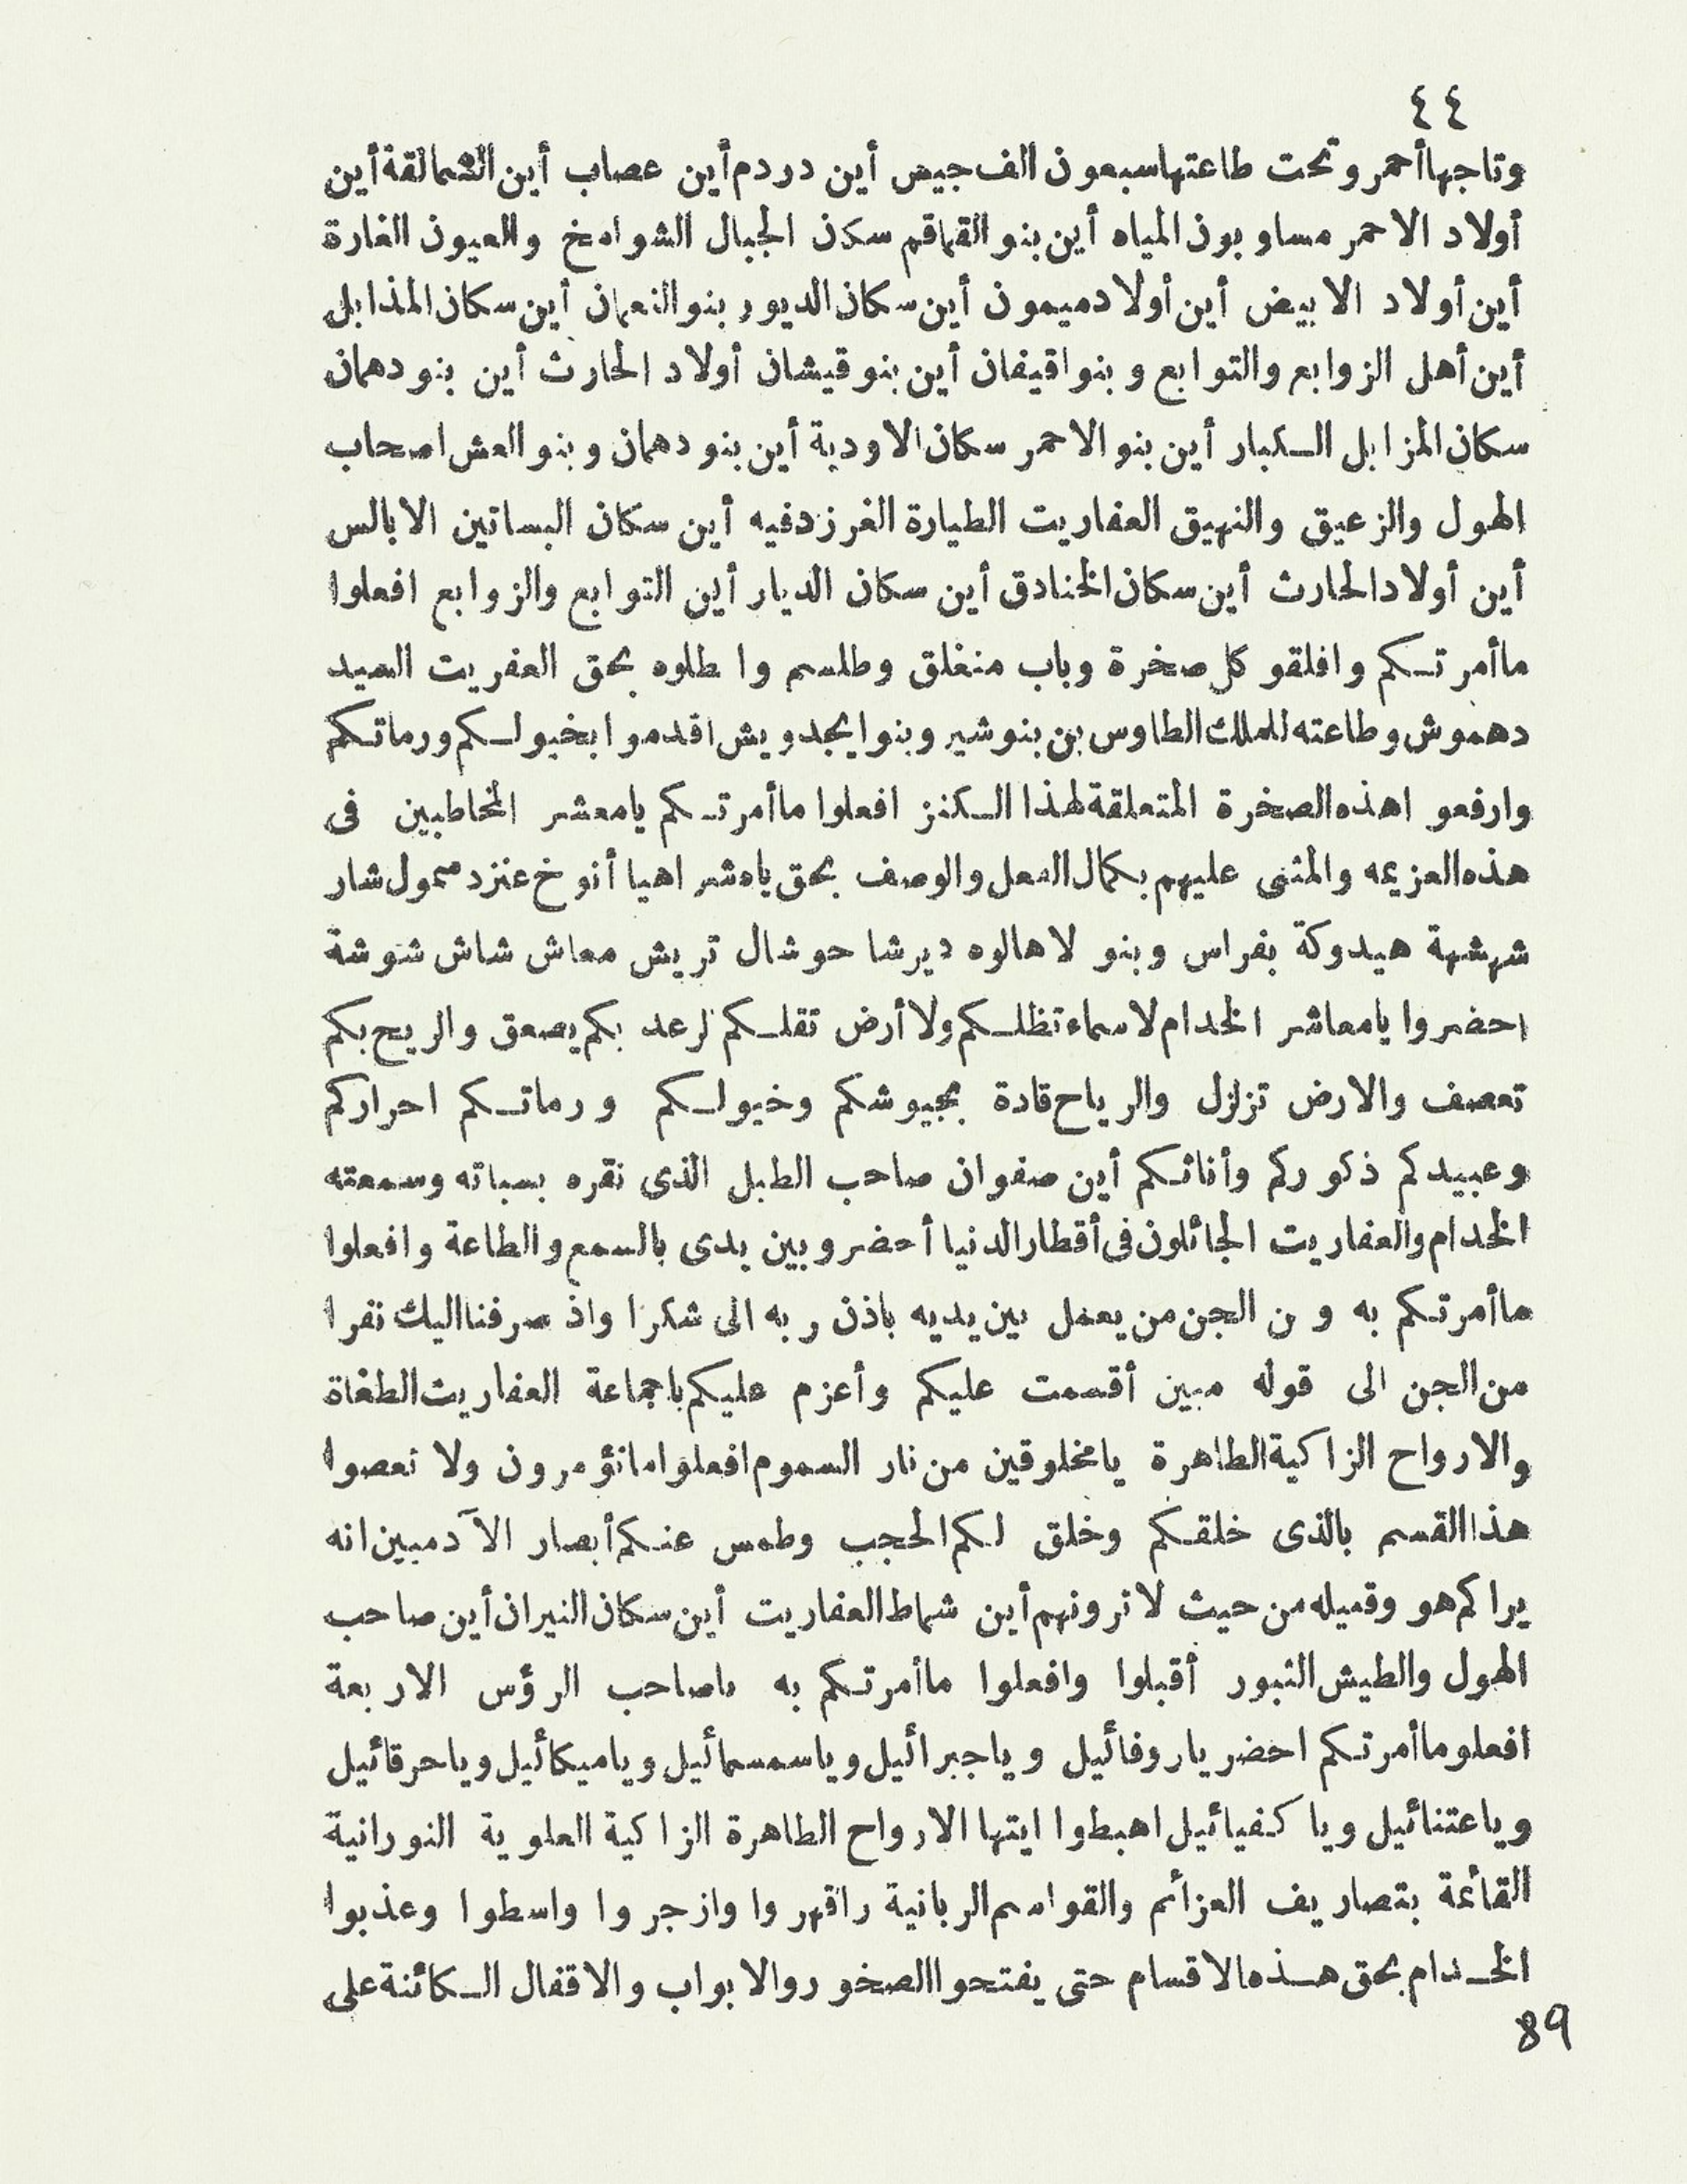 ٤٤
وتاجها أحمر وتحت طاعتها سبعون الف جيس أين دردم أين عصاب أين الشمالقة أين
أولاد الاحمر مساو بون المياه أين بنو القماقم سكن الجبال الشوامخ والعيون الغارة
أين أولاد الابيض أين أولاد ميمون أين سكان الديور بنو النعمان أين سكان المذابل
أين أهل الزوابع والتوابع وبنو اقيفان أين بنو قيشان أولاد الحارث أين بنو دهمان
سكان المزابل الكبار أين بنو الاحمر سكان الاودية أين بنو دهمان وبنو العش اصحاب
الهول والزعيق والنهيق العفاريت الطيارة الغر زدفيه أين سكان البساتين الابالس
أين أولاد الحارث أين سكان الخنادق أين سكان الديار أين التوابع والزوابع افعلوا
ما أمرتكم وافلقو كل صخرة وباب منغلق وطلسم وا طلوه بحق العفريت السيد
دهموش وطاعته للملك الطاوس بن بنو شير وبنو ايجدويش اقدموا بخيولكم ورماتكم
وارفعو اهذه الصخرة المتعلقة لهذا الكنز افعلوا ما أمرتكم يامعشر المخاطبين فى
هذه العزيمه والمثنى عليهم بكمال الفعل والوصف بحق ياه شر اهيا أنوخ عنزد سمول شار
شهشهة هيدوكة بفراس وبنو لاهالوه ديرشا حوشال تريش معاش شاش شوشة
احضروا يامعاشر الخدام لاسماء تظلكم ولا أرض تقلكم لرعد بكم يصعق والريح بكم
تعصف والارض تزلزل والرياح قادة بجيوشكم وخيولكم ورماتكم احراركم
وعبيدكم ذكوركم وأناثكم أين صفوان صاحب الطبل الذى نقره بسباته وسمعته
الخدام والعفاريت الجائلون فى أقطار الدنيا أحضرو بين يدى بالسمع والطاعة وافعلوا
ما أمرتكم به و ن الجن من يعمل بين يديه باذن ربه الى شكرا واذ صرفنا اليك نفرا
من الجن الى قوله مبين أقسمت عليكم وأعزم عليكم ياجماعة العفاريت الطغاة
والارواح الزاكية الطاهرة يامخلوقين من نار السموم افعلوا ماتؤمرون ولا تعصوا
هذا القسم بالذى خلقكم وخلق لكم الحجب وطمس عنكم أبصار الآدميين انه
يراكم هو وقبيله من حيث لاترونهم أين شماط العفاريت أين سكان النيران أين صاحب
الهول والطيش الثبور أقبلوا وافعلوا ما أمرتكم به ياصاحب الرؤس الاربعة
افعلو ما أمرتكم احضر ياروفائيل وياجبرائيل وياسمسمائيل وياميكائيل وياحرقائيل
وياعتنائيل ويا كفيائيل اهبطوا ايتها الارواح الطاهرة الزاكية العلوية النورانية
القائمة بتصاريف العزائم والقواسم الربانية راقهروا وازجروا واسطوا وعذبوا
الخدام بحق هذه الاقسام حتى يفتحوا الصخور والابواب والاقفال الكائنة على
89